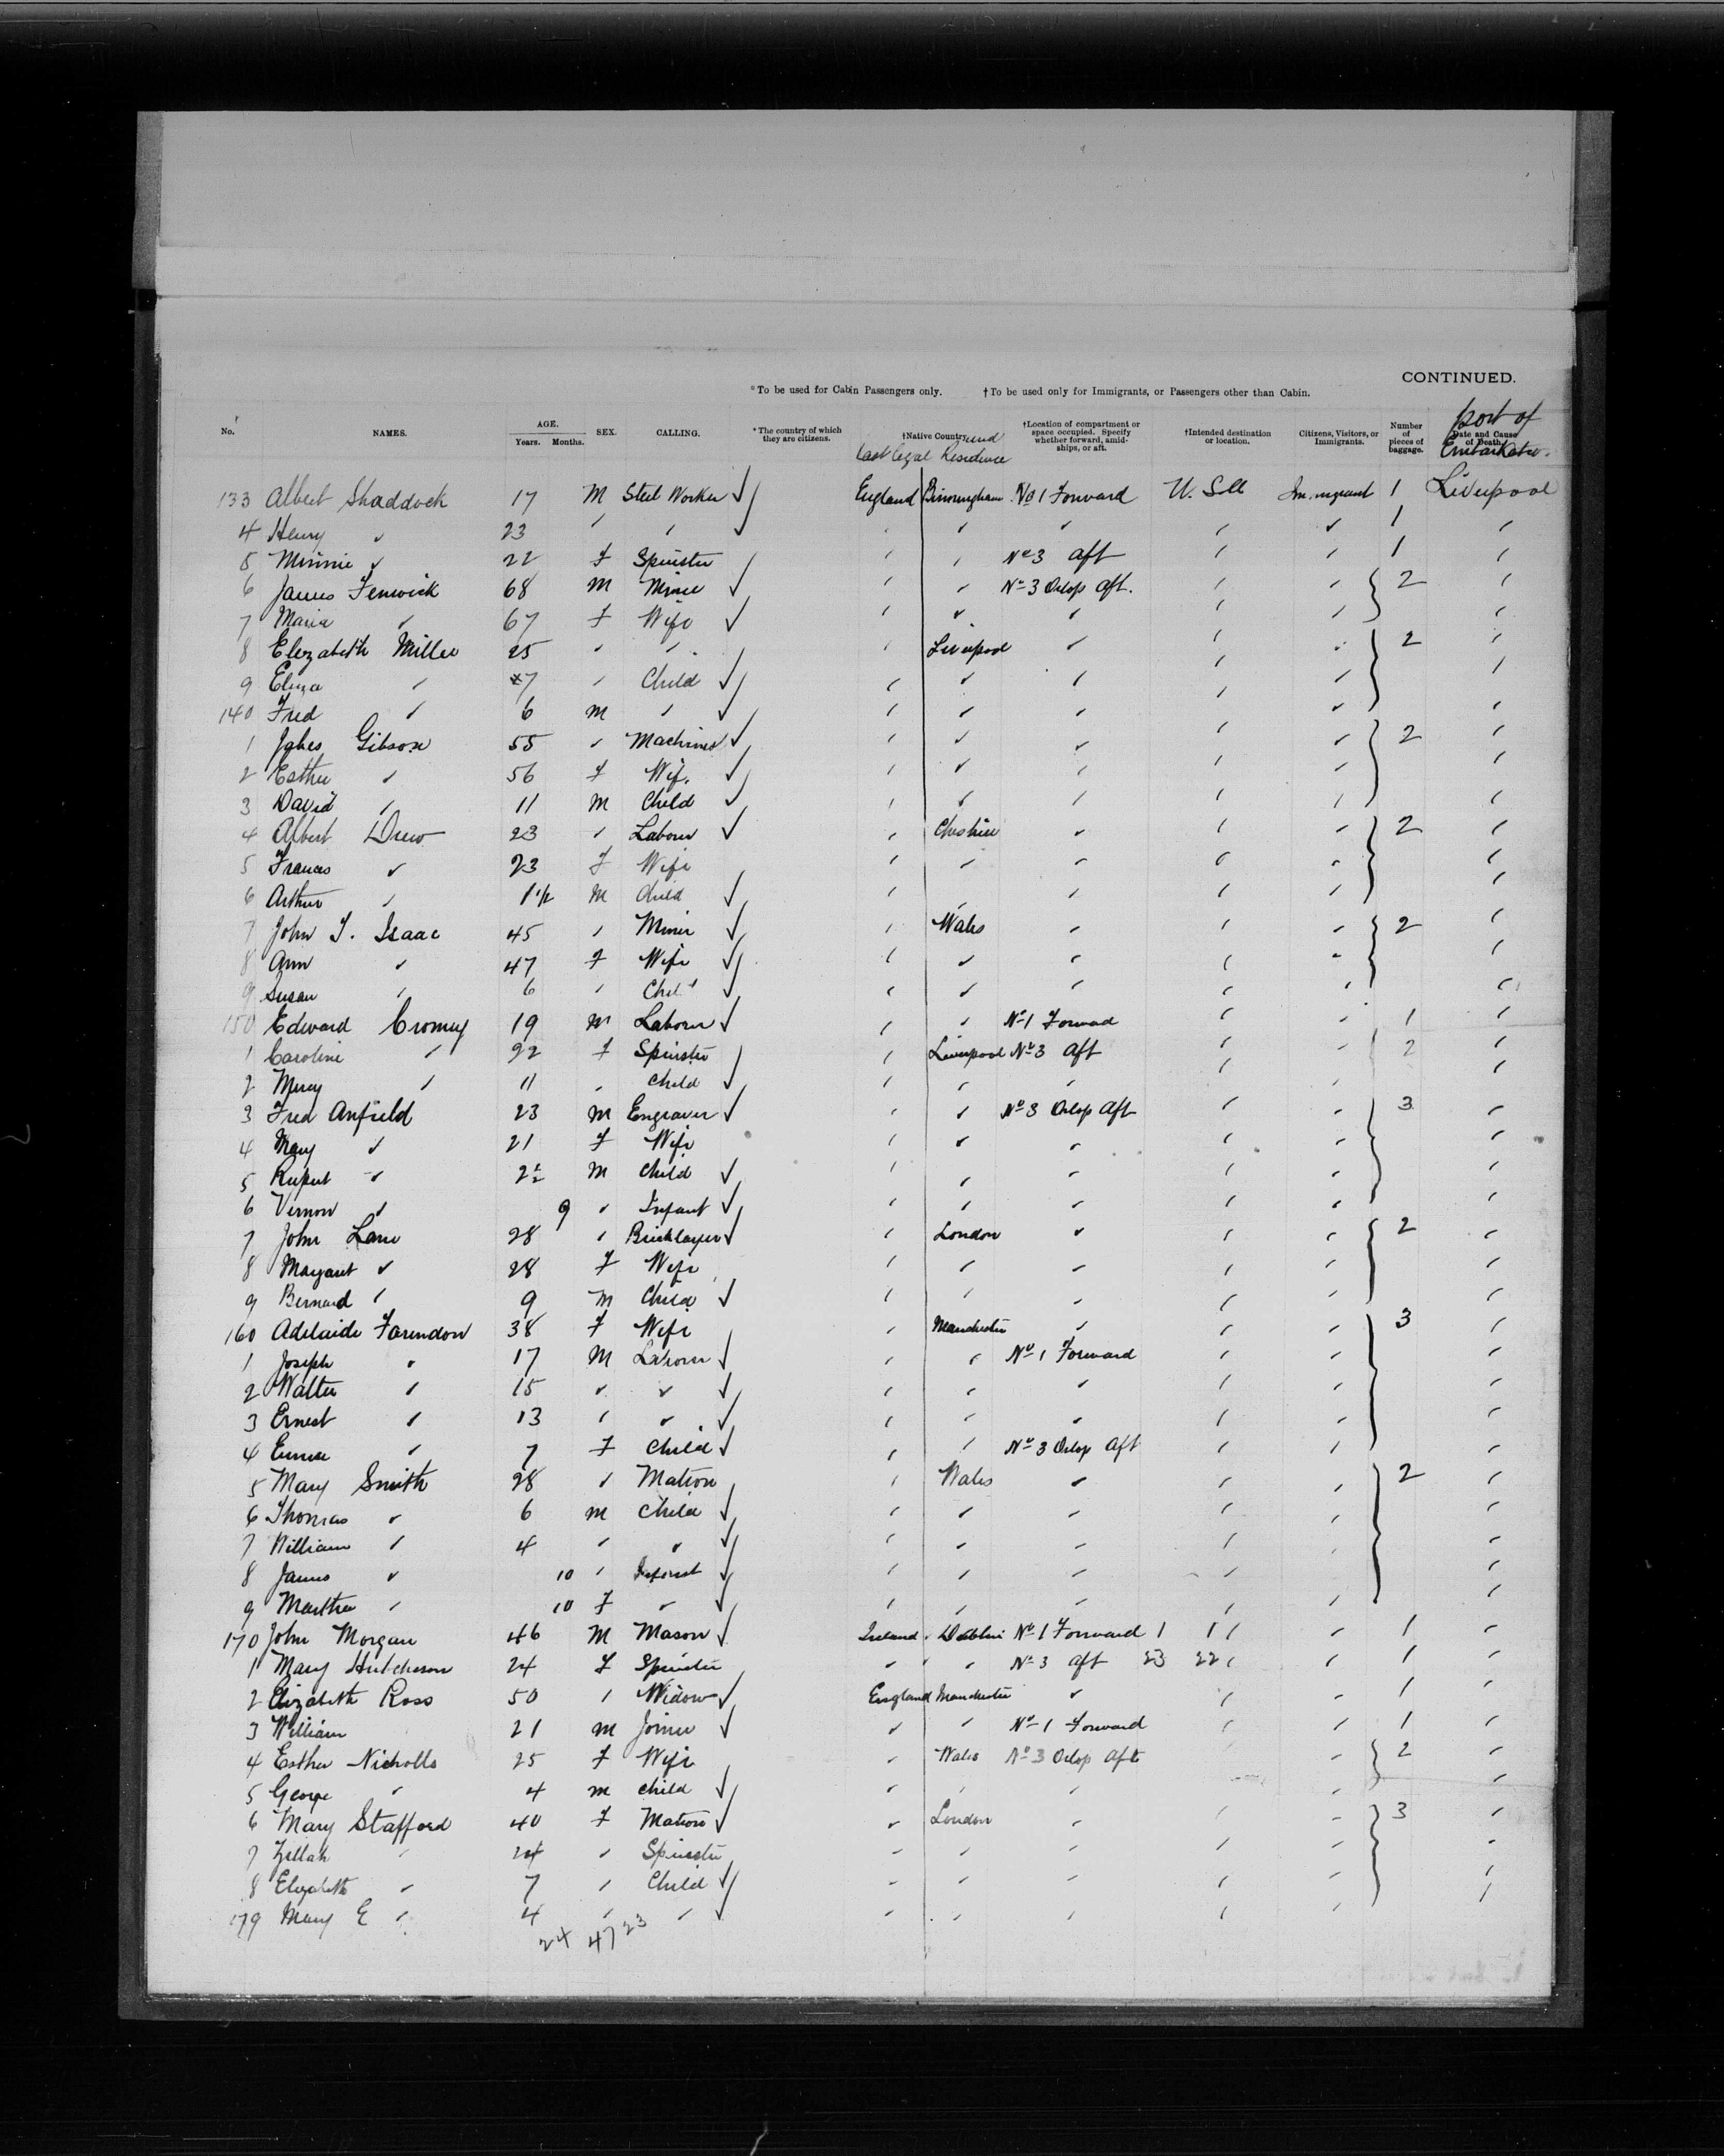 CONTINUED.
*To be used for Cabin Passengers only. †To be used only for Immigrants, or Passengers other than Cabin.
No. NAMES. AGE. Years. Months. SEX. CALLING. *The country of which they are citizens. †Native Country and last legal Residence †Location of compartment or space occupied. Specify whether forward, amidships, or aft. †Intended destination or location. Citizens, Visitors, or Immigrants. Number of pieces of baggage. Date and Cause of Death. Port of Embarkatn.
133 Albert Shaddock 17 M Steel Worker England Birmingham No 1 Forward U.S.A. Immigrant 1 Liverpool
4 Henry " 23 " " " " " " " 1 "
5 Minnie " 22 F Spinster " " No 3 Aft " " 1 "
6 James Fenwick 68 M Miner " " No 3 Orlop Aft. " " 2 "
7 Maria " 67 F Wife " " " " " "
8 Elizabeth Miller 25 " " " Liverpool " " " 2 "
9 Eliza " 7 " Child " " " " " "
140 Fred " 6 M " " " " " " "
1 Gibson 55 " Machinist " " " " " 2 "
2 Esther " 56 F Wife " " " " " "
3 David " 11 M Child " " " " " "
4 Albert Drew 23 " Labourer " Cheshire " " " 2 "
5 Frances " 23 F Wife " " " " " "
6 Arthur " 1 1/2 M Child " " " " " "
7 John T. Isaac 45 " Miner " Wales " " " 2 "
8 Ann " 47 F Wife " " " " " "
9 Susan " 6 " Child " " " " " "
150 Edward Cromey 19 M Labourer " " No 1 Forward " " 1 "
1 Caroline " 22 F Spinster " Liverpool No 3 Aft " " 2 "
2 Mercy " 11 " Child " " " " " "
3 Fred Anfield 23 M Engraver " " No 3 Orlop Aft " " 3 "
4 Mary " 21 F Wife " " " " " "
5 Rupert " 2 1/2 M Child " " " " " "
6 Vernon " 9 " Infant " " " " " "
7 John Lane 28 " Bricklayer " London " " " 2 "
8 Margaret " 28 F Wife " " " " " "
9 Bernard " 9 M Child " " " " " "
160 Adelaide Farendon 38 F Wife " Manchester " " " 3 "
1 Joseph " 17 M Labourer " " No 1 Forward " " "
2 Walter " 15 " " " " " " " "
3 Ernest " 13 " " " " " " " "
4 " 7 F Child " " No 3 Orlop Aft " " "
5 Mary Smith 28 " Matron " Wales " " " 2 "
6 Thomas " 6 M Child " " " " " "
7 William " 4 " " " " " " " "
8 James " 10 " Infant " " " " " "
9 Martha " 10 F " " " " " " "
170 John Morgan 46 M Mason Ireland Dublin No 1 Forward 1 1 " " 1 "
1 Mary Hutcheson 24 F Spinster " " No 3 Aft 23 22 " " 1 "
2 Elizabeth Ross 50 " Widow England Manchester " " " 1 "
3 William 21 M Joiner " " No 1 Forward " " 1 "
4 Esther Nicholls 25 F Wife " Wales No 3 Orlop Aft " " 2 "
5 George " 4 M Child " " " " " "
6 Mary Stafford 40 F Matron " London " " " 3 "
7 Zillah " 24 " Spinster " " " " " "
8 Elizabeth " 7 " Child " " " " " "
179 Mary E " 4 " " " " " " " "
24 47 23